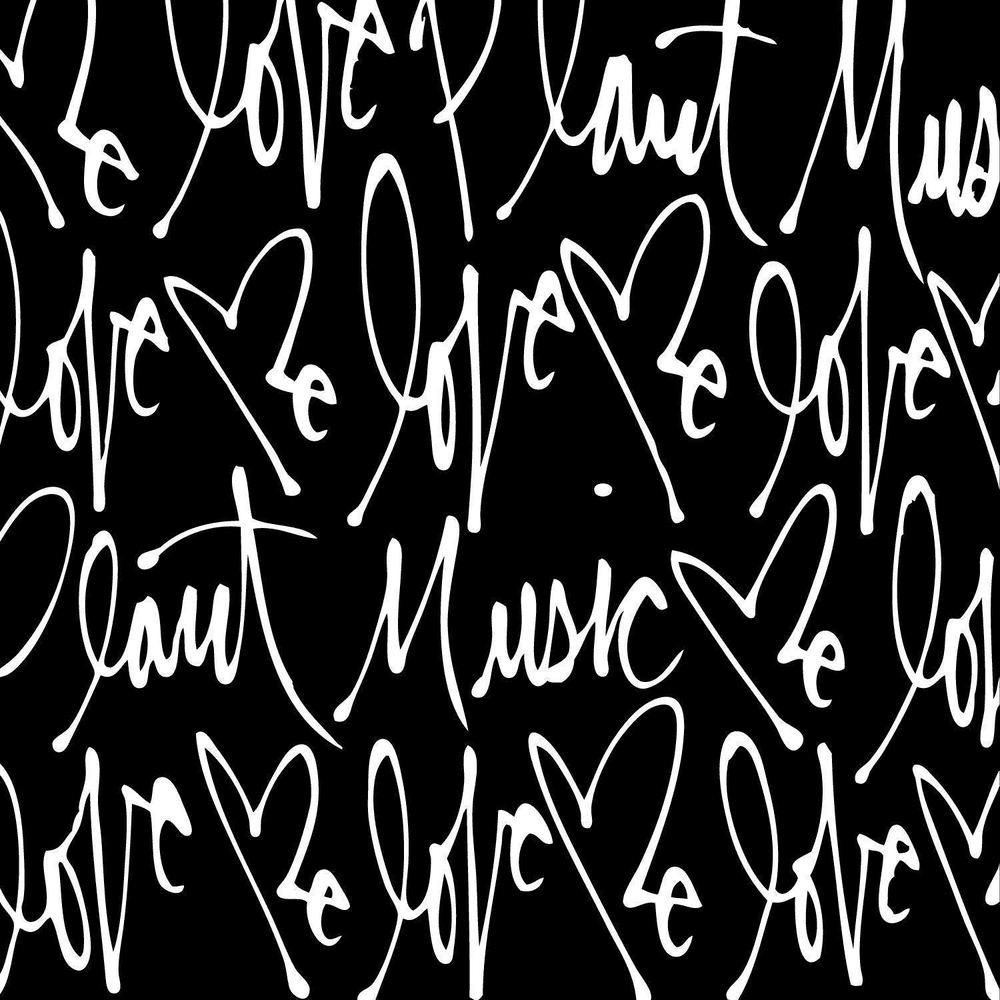 Me love laut Mus
love Me love Me love
laut Music Me lov
love Me love Me love